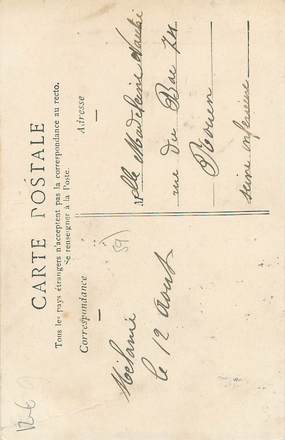 CARTE POSTALE
Tous les pays étrangers n'acceptent pas la correspondance au recto.
Se renseigner à la Poste.
Correspondance
Adresse
Mélanie
le 12 Aout
Mlle Madeleine
rue du Bac 74
Rouen
Seine inférieure
59